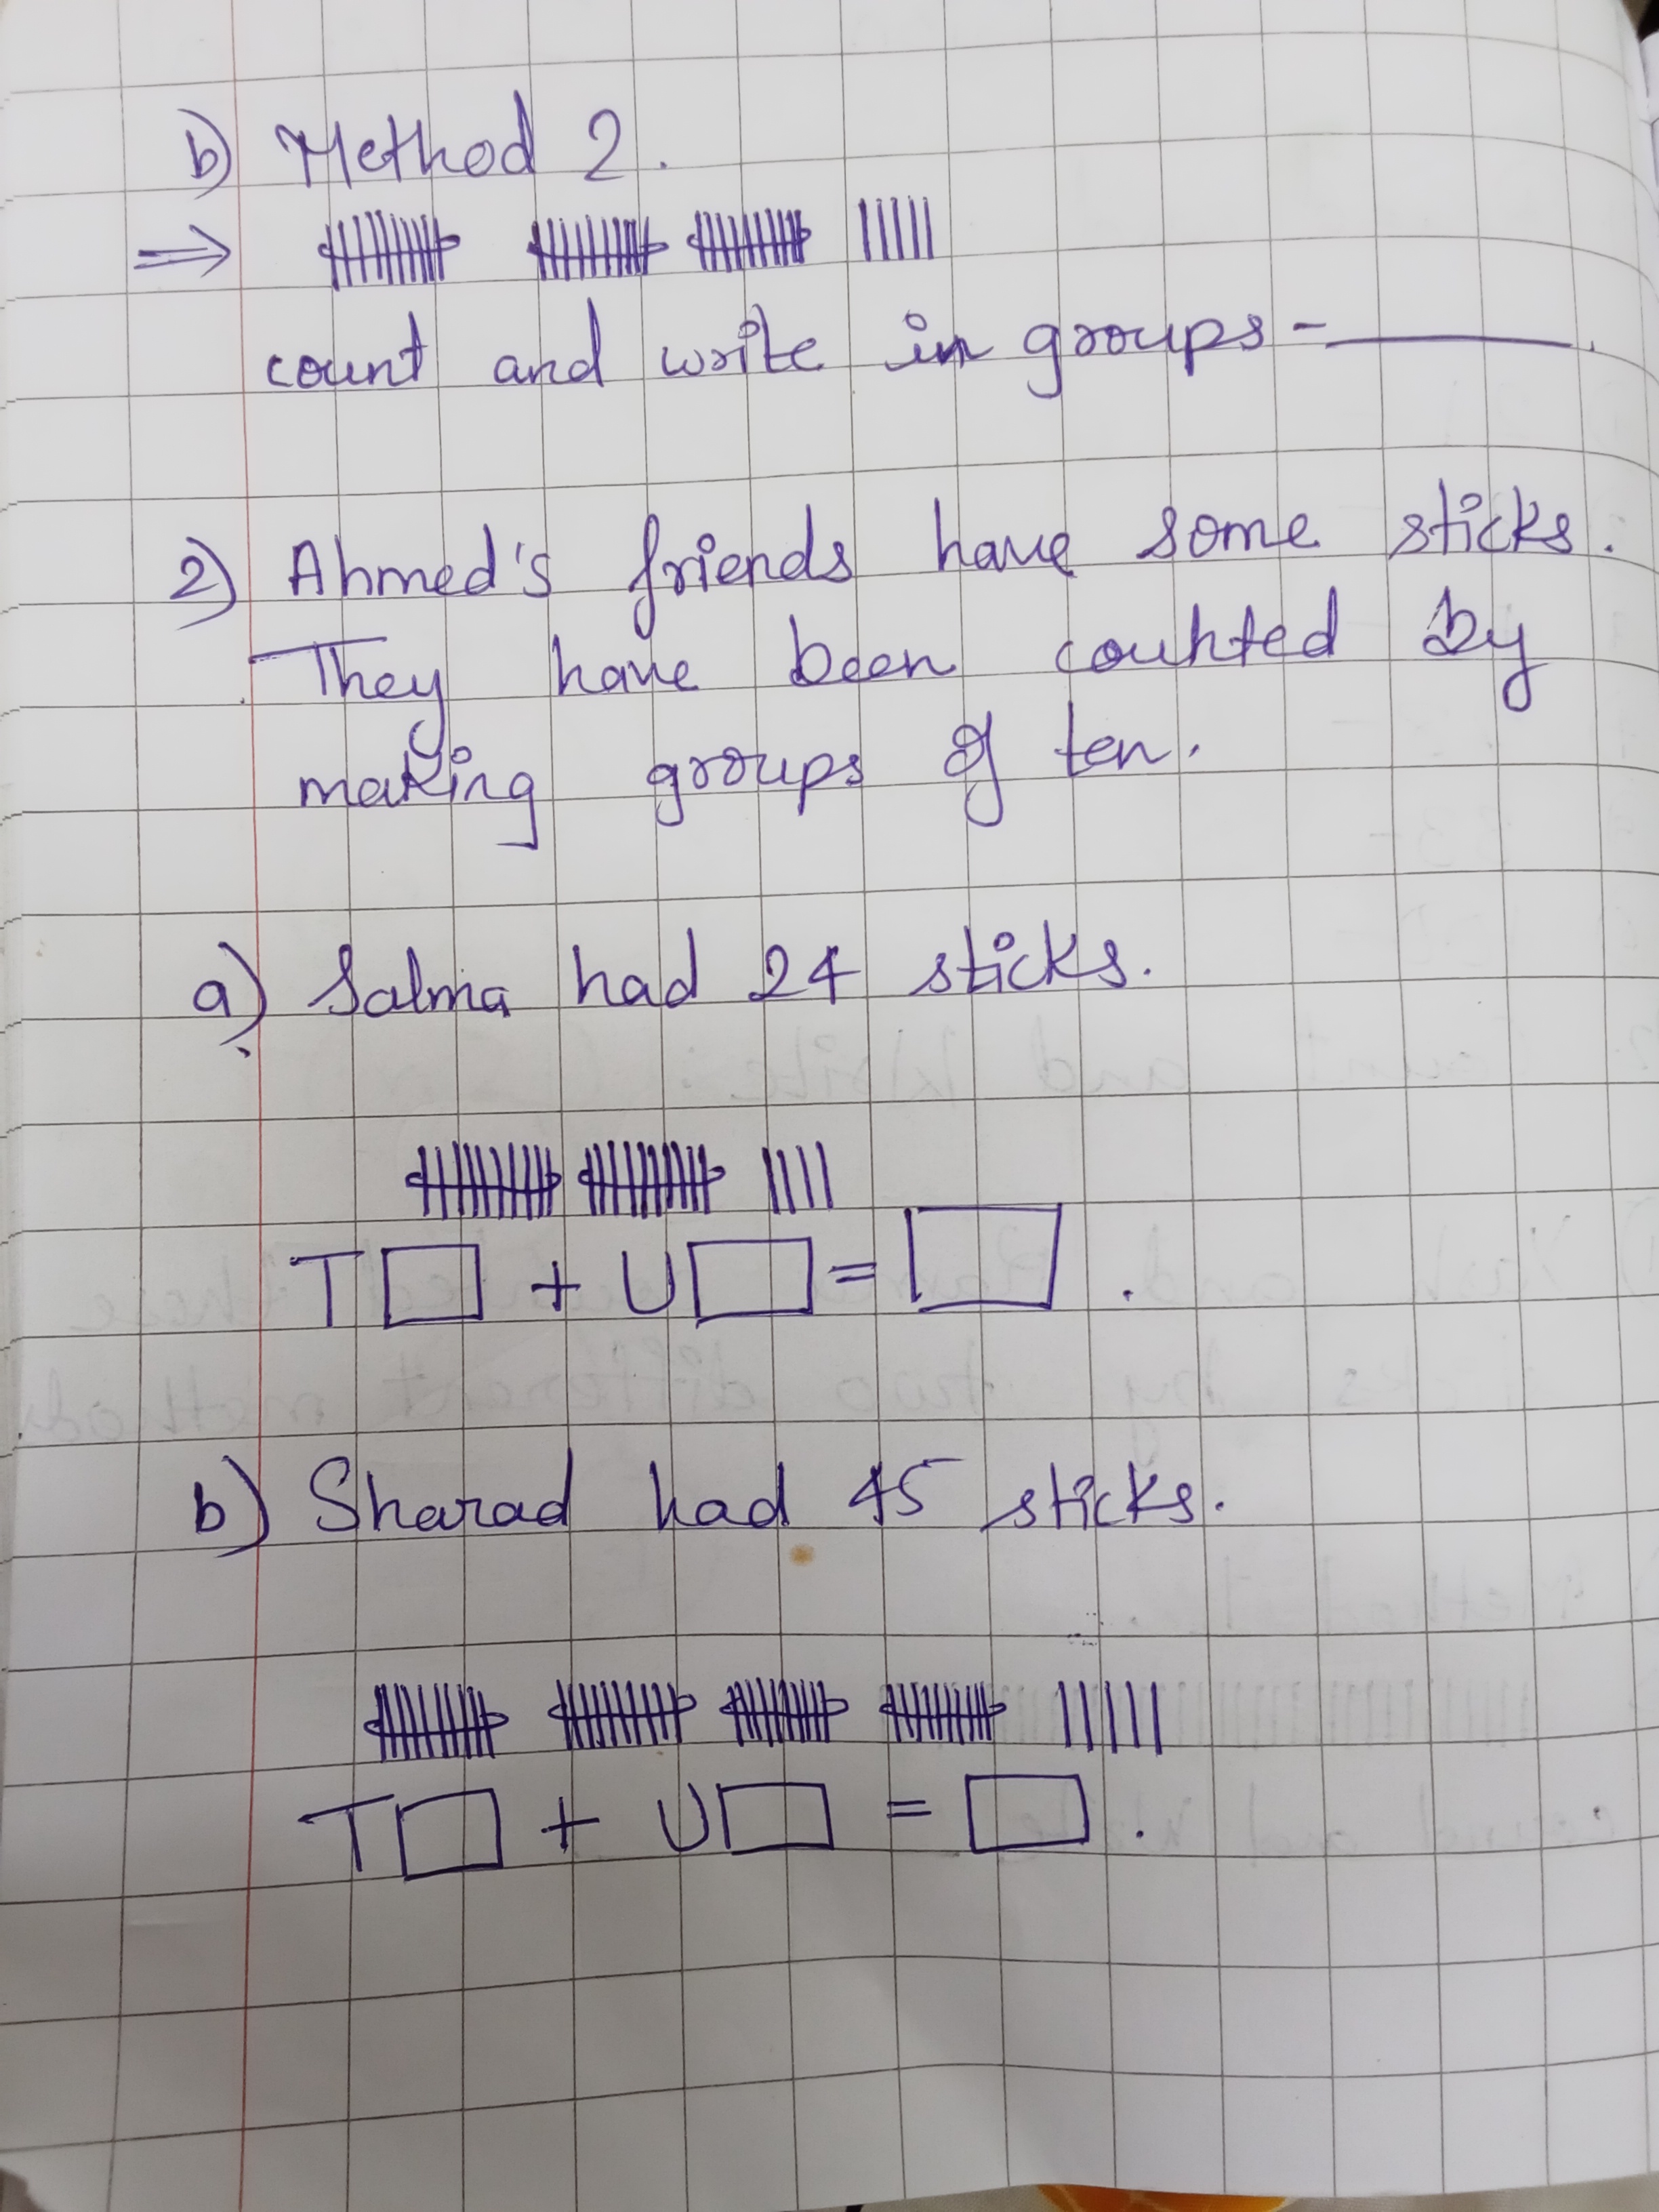 b) Method 2.
⇒
count and write in groups - ______.
2) Ahmed's friends have some sticks.
They have been counted by
making groups of ten.
a) Salma had 24 sticks.
T□ + U□ = □.
b) Sharad had 45 sticks.
T□ + U□ = □.